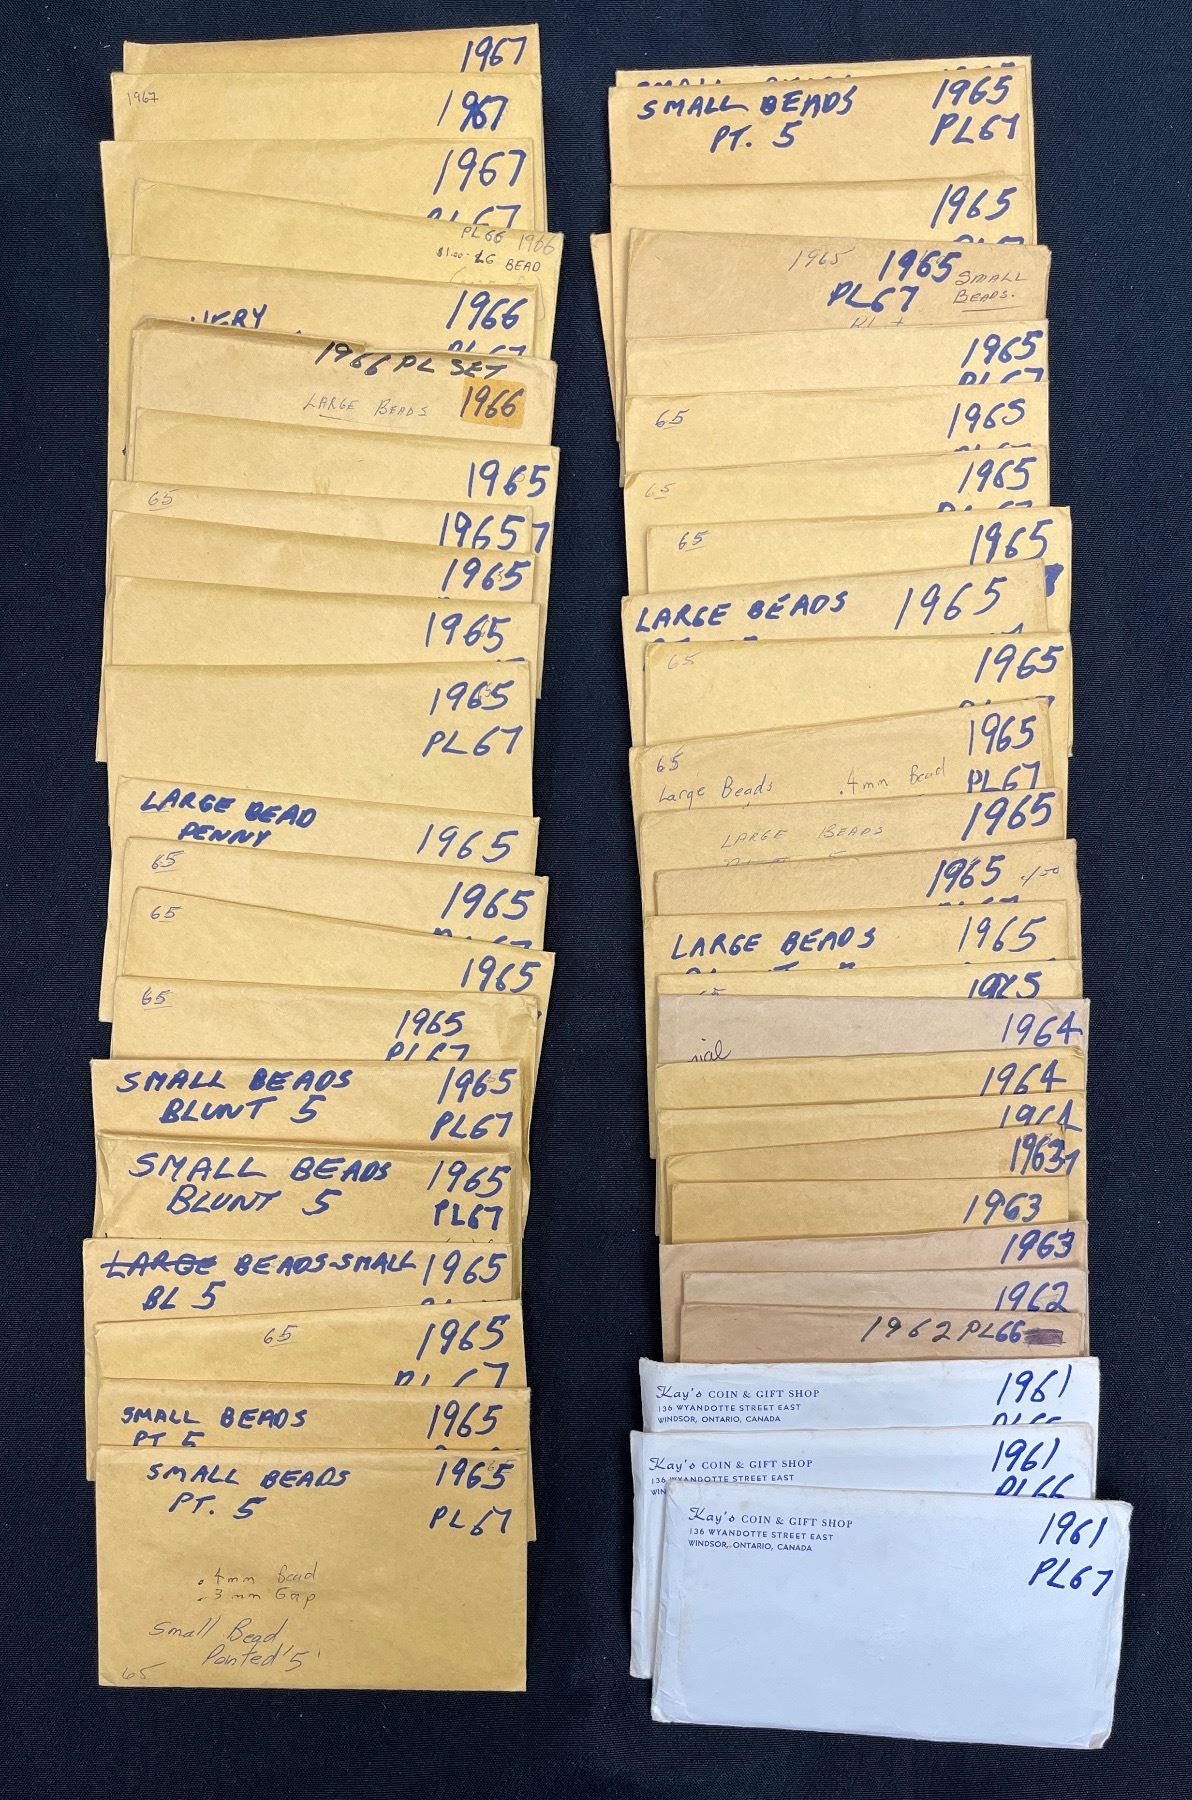 1967
1967
1967
1967
PL 66 1966
$1.00 LG BEAD
1966
1966 PL SET
LARGE BEADS 1966
1965
65
1965 7
1965
1965
1965
PL67
LARGE BEAD
PENNY
1965
65
1965
65
1965
65
1965
PL67
SMALL BEADS 1965
BLUNT 5 PL67
SMALL BEADS 1965
BLUNT 5 PL67
LARGE BEADS-SMALL 1965
BL 5
65
1965
SMALL BEADS 1965
PT 5
SMALL BEADS 1965
PT. 5 PL67
.4mm Bead
.3mm Gap
Small Bead
Pointed '5'
65
SMALL BEADS 1965
PT. 5 PL67
1965
1965 1965 SMALL
PL67 BEADS.
1965
PL67
65 1965
65 1965
65 1965
LARGE BEADS 1965
65 1965
1965
65
Large Beads .4mm Bead PL67
LARGE BEADS 1965
1965
LARGE BEADS 1965
1965
1964
1964
1964
1963
1963
1963
1962
1962 PL66
Kay's COIN & GIFT SHOP 1961
136 WYANDOTTE STREET EAST
WINDSOR, ONTARIO, CANADA
Kay's COIN & GIFT SHOP 1961
136 WYANDOTTE STREET EAST PL66
Kay's COIN & GIFT SHOP 1961
136 WYANDOTTE STREET EAST
WINDSOR, ONTARIO, CANADA PL67